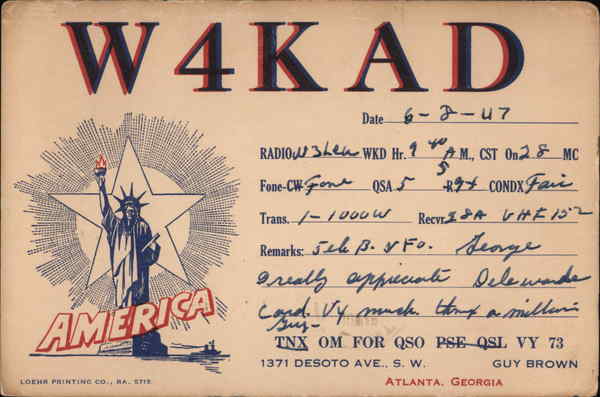 W4KAD
Date 6-8-47
RADIO W3LCU WKD Hr. 9 40 A M., CST On 28 MC
Fone-CW Fone QSA 5 R 9+ CONDX Fair
Trans. 1-1000W Recvr. 28A VHF 152
Remarks: 5 ele B. VFO. George
I really appreciate Delaware
Card. Vy much. thnx a million
Guy-
TNX OM FOR QSO PSE QSL VY 73
1371 DESOTO AVE., S. W. GUY BROWN
ATLANTA, GEORGIA
AMERICA
LOEHR PRINTING CO., RA. 5715